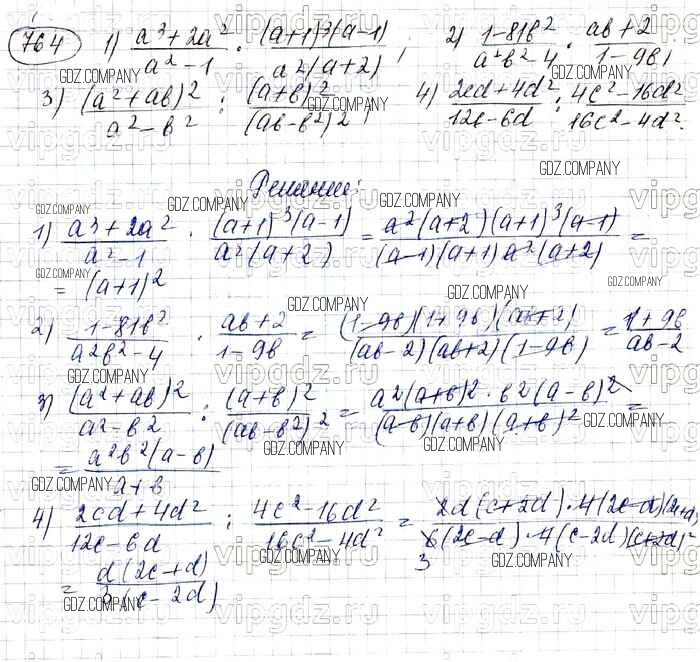 764 1) (a³+2a²)/(a²-1) · ((a+1)³(a-1))/(a²(a+2)), 2) (1-81b²)/(a²b²-4) · (ab+2)/(1-9b)
3) (a²+ab)²/(a²-b²) : (a+b)²/(ab-b²)², 4) (2cd+4d²)/(12c-6d) : (4c²-16d²)/(16c²-4d²).
Решение:
1) (a³+2a²)/(a²-1) · ((a+1)³(a-1))/(a²(a+2)) = (a²(a+2)(a+1)³(a-1))/((a-1)(a+1)a²(a+2)) =
= (a+1)²
2) (1-81b²)/(a²b²-4) · (ab+2)/(1-9b) = ((1-9b)(1+9b)(ab+2))/((ab-2)(ab+2)(1-9b)) = (1+9b)/(ab-2)
3) (a²+ab)²/(a²-b²) : (a+b)²/(ab-b²)² = (a²(a+b)²·b²(a-b)²)/((a-b)(a+b)(a+b)²) =
= (a²b²(a-b))/(a+b)
4) (2cd+4d²)/(12c-6d) : (4c²-16d²)/(16c²-4d²) = (2d(c+2d)·4(2c-d)(2c+d))/(6(2c-d)·4(c-2d)(c+2d))
3
= (d(2c+d))/(3(c-2d))
GDZ.COMPANY
vipgdz.ru